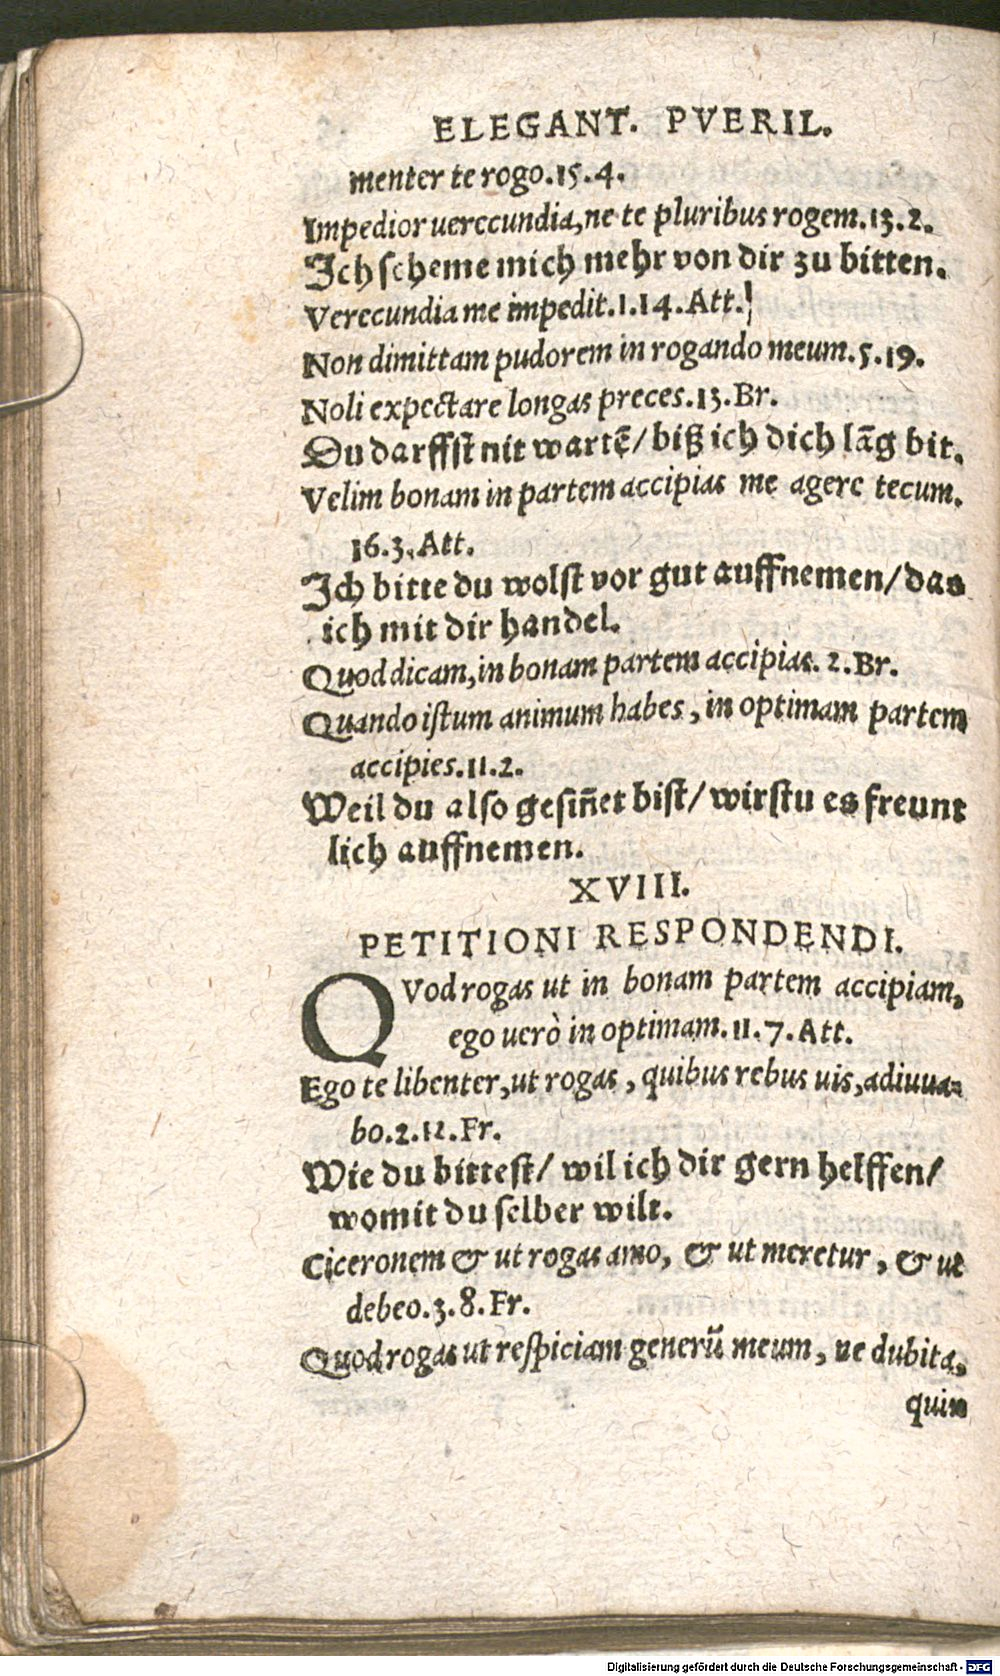 ELEGANT. PVERIL.
menter te rogo.15.4.
Impedior uerecundia,ne te pluribus rogem.13.2.
Ich scheme mich mehr von dir zu bitten.
Verecundia me impedit.1.14.Att.
Non dimittam pudorem in rogando meum.5.19.
Noli expectare longas preces.13.Br.
Du darffst nit wartẽ/ biß ich dich lãg bit.
Velim bonam in partem accipias me agere tecum.
16.3.Att.
Ich bitte du wolst vor gut auffnemen/das
ich mit dir handel.
Quod dicam,in bonam partem accipias. 2.Br.
Quando istum animum habes, in optimam partem
accipies.11.2.
Weil du also gesiñet bist/ wirstu es freunt
lich auffnemen.
XVIII.
PETITIONI RESPONDENDI.
QVod rogas ut in bonam partem accipiam,
ego uerò in optimam.11.7.Att.
Ego te libenter,ut rogas, quibus rebus uis,adiuua-
bo.2.12.Fr.
Wie du bittest/ wil ich dir gern helffen/
womit du selber wilt.
Ciceronem & ut rogas amo, & ut meretur, & ut
debeo.3.8.Fr.
Quod rogas ut respiciam generũ meum, ne dubita,
quin
Digitalisierung gefördert durch die Deutsche Forschungsgemeinschaft - DFG